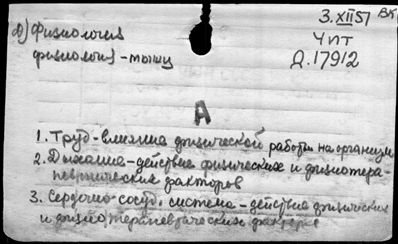 3.XII 51 ВК
в) Физиология
Чит
физиология - мышц
Д.179/2
А
1. Труд - влияние физической работы на организм
2. Дыхание - действие физических и физиотера-
певтических факторов
3. Сердечно-сосуд. система - действие физических
и физиотерапевтических факторов